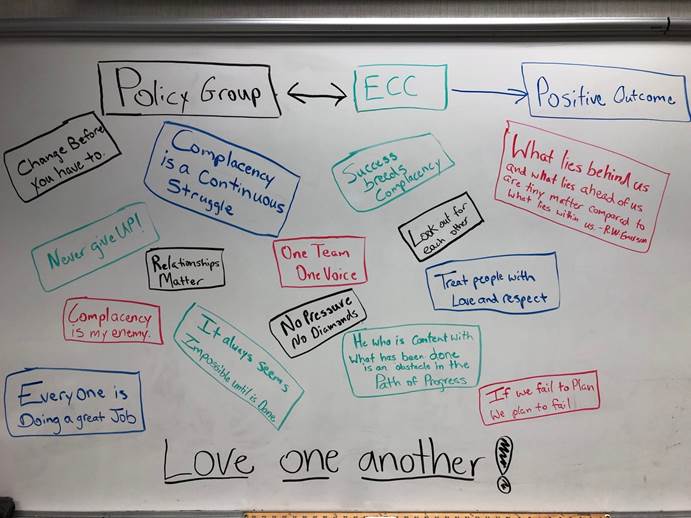 Policy Group
ECC
Positive Outcome
Change Before
You have to.
Complacency
is a Continuous
Struggle
Success
breeds
Complacency
What lies behind us
and what lies ahead of us
are tiny matter compared to
what lies within us. - RW Emerson
Never give UP!
Relationships
Matter
One Team
One Voice
Look out for
each other
Treat people with
Love and respect
Complacency
is my enemy.
It always seems
Impossible until is Done.
No Pressure
No Diamonds
He who is content with
What has been done
is an obstacle in the
Path of Progress
Every One is
Doing a great Job
If we fail to Plan
We plan to fail
Love one another!